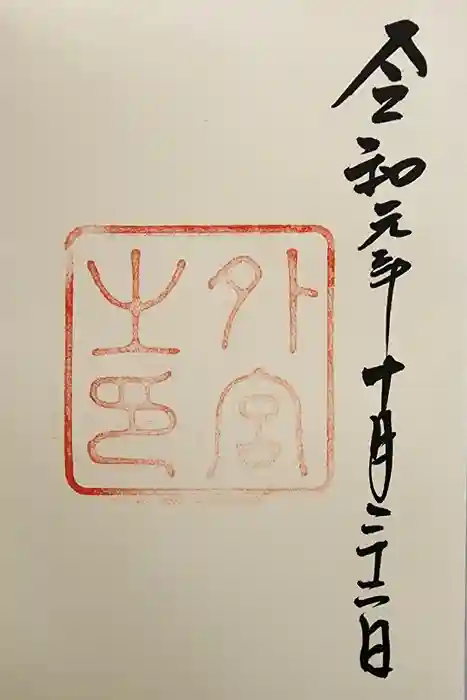 令和元年十月二十二日
外宮
之印